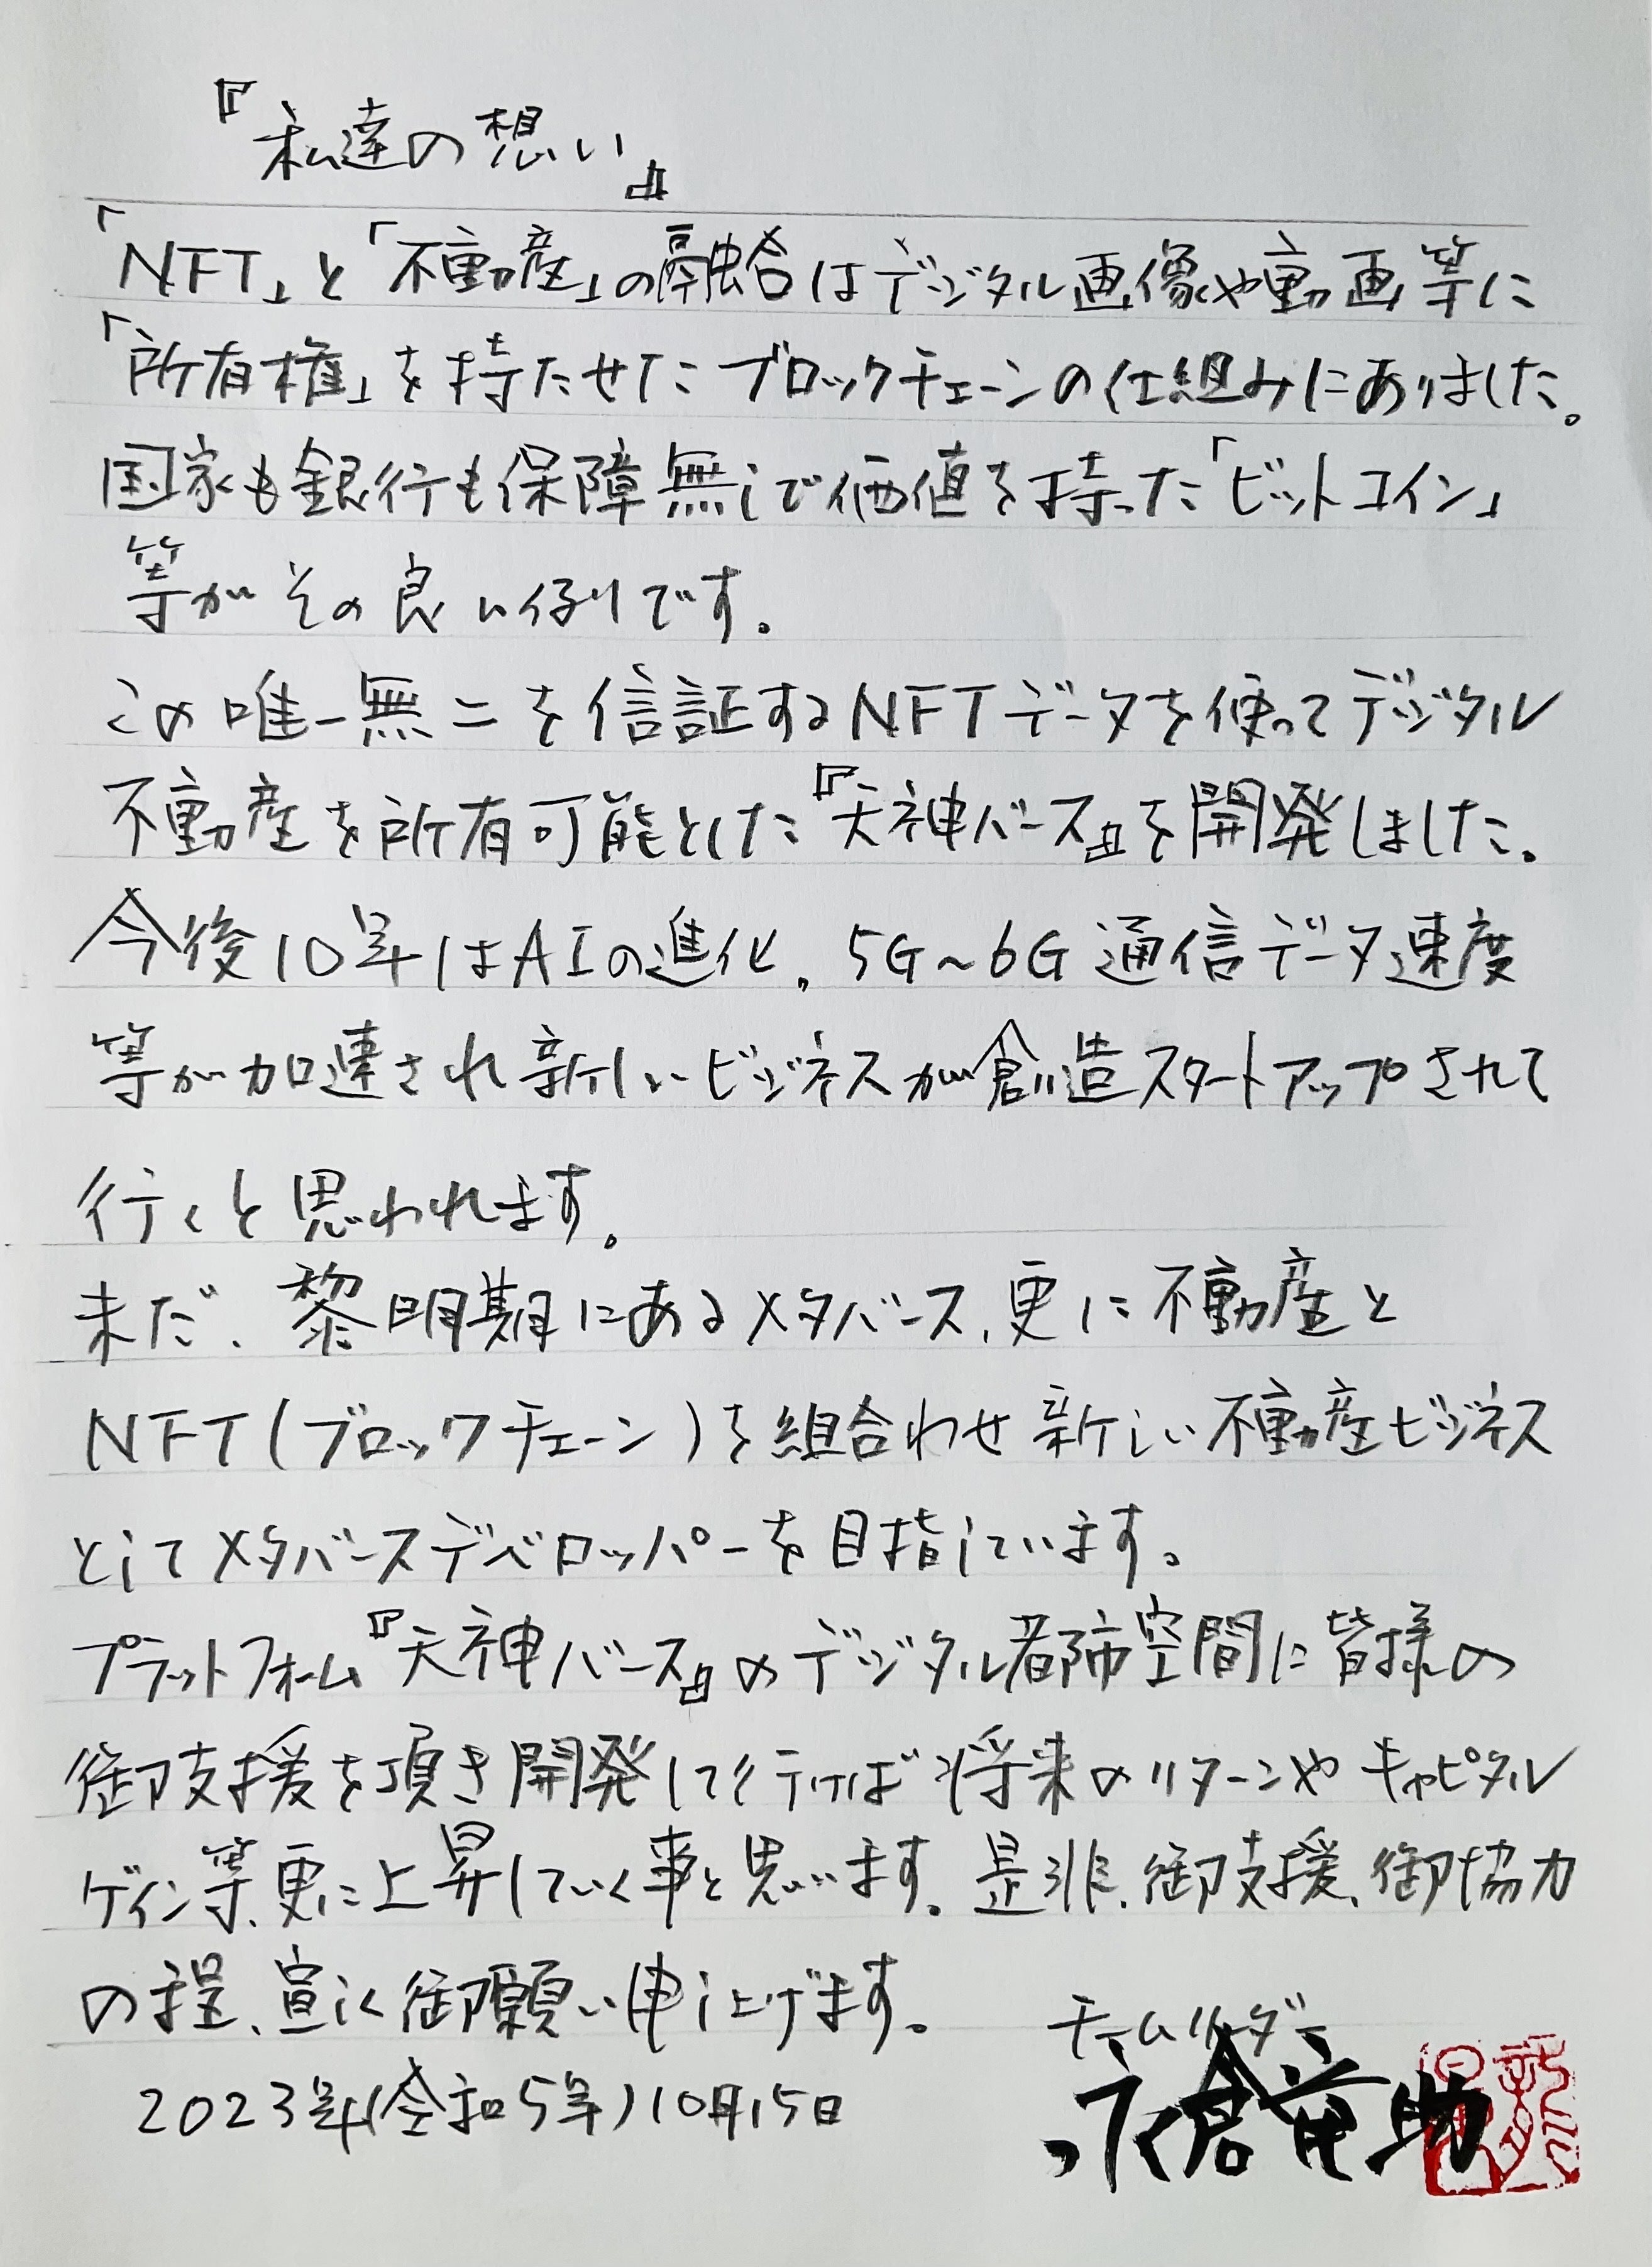 『私達の想い』
「NFT」と「不動産」の融合はデジタル画像や動画等に
「所有権」を持たせたブロックチェーンの仕組みにありました。
国家も銀行も保障無しで価値を持った「ビットコイン」
等がその良い例です。
この唯一無二を信証するNFTデータを使ってデジタル
不動産を所有可能とした『天神バース』を開発しました。
今後10年はAIの進化、5G~6G通信データ速度
等が加速され新しいビジネスが創造スタートアップされて
行くと思われます。
未だ、黎明期にあるメタバース、更に不動産と
NFT(ブロックチェーン)を組合わせ新しい不動産ビジネス
としてメタバースデベロッパーを目指しています。
プラットフォーム『天神バース』のデジタル都市空間に皆様の
御支援を頂き開発して行けば将来のリターンやキャピタル
ゲイン等、更に上昇していく事と思います。是非、御支援、御協力
の程、宜しく御願い申し上げます。
チームリーダー
2023年(令和5年)10月15日
永倉 助